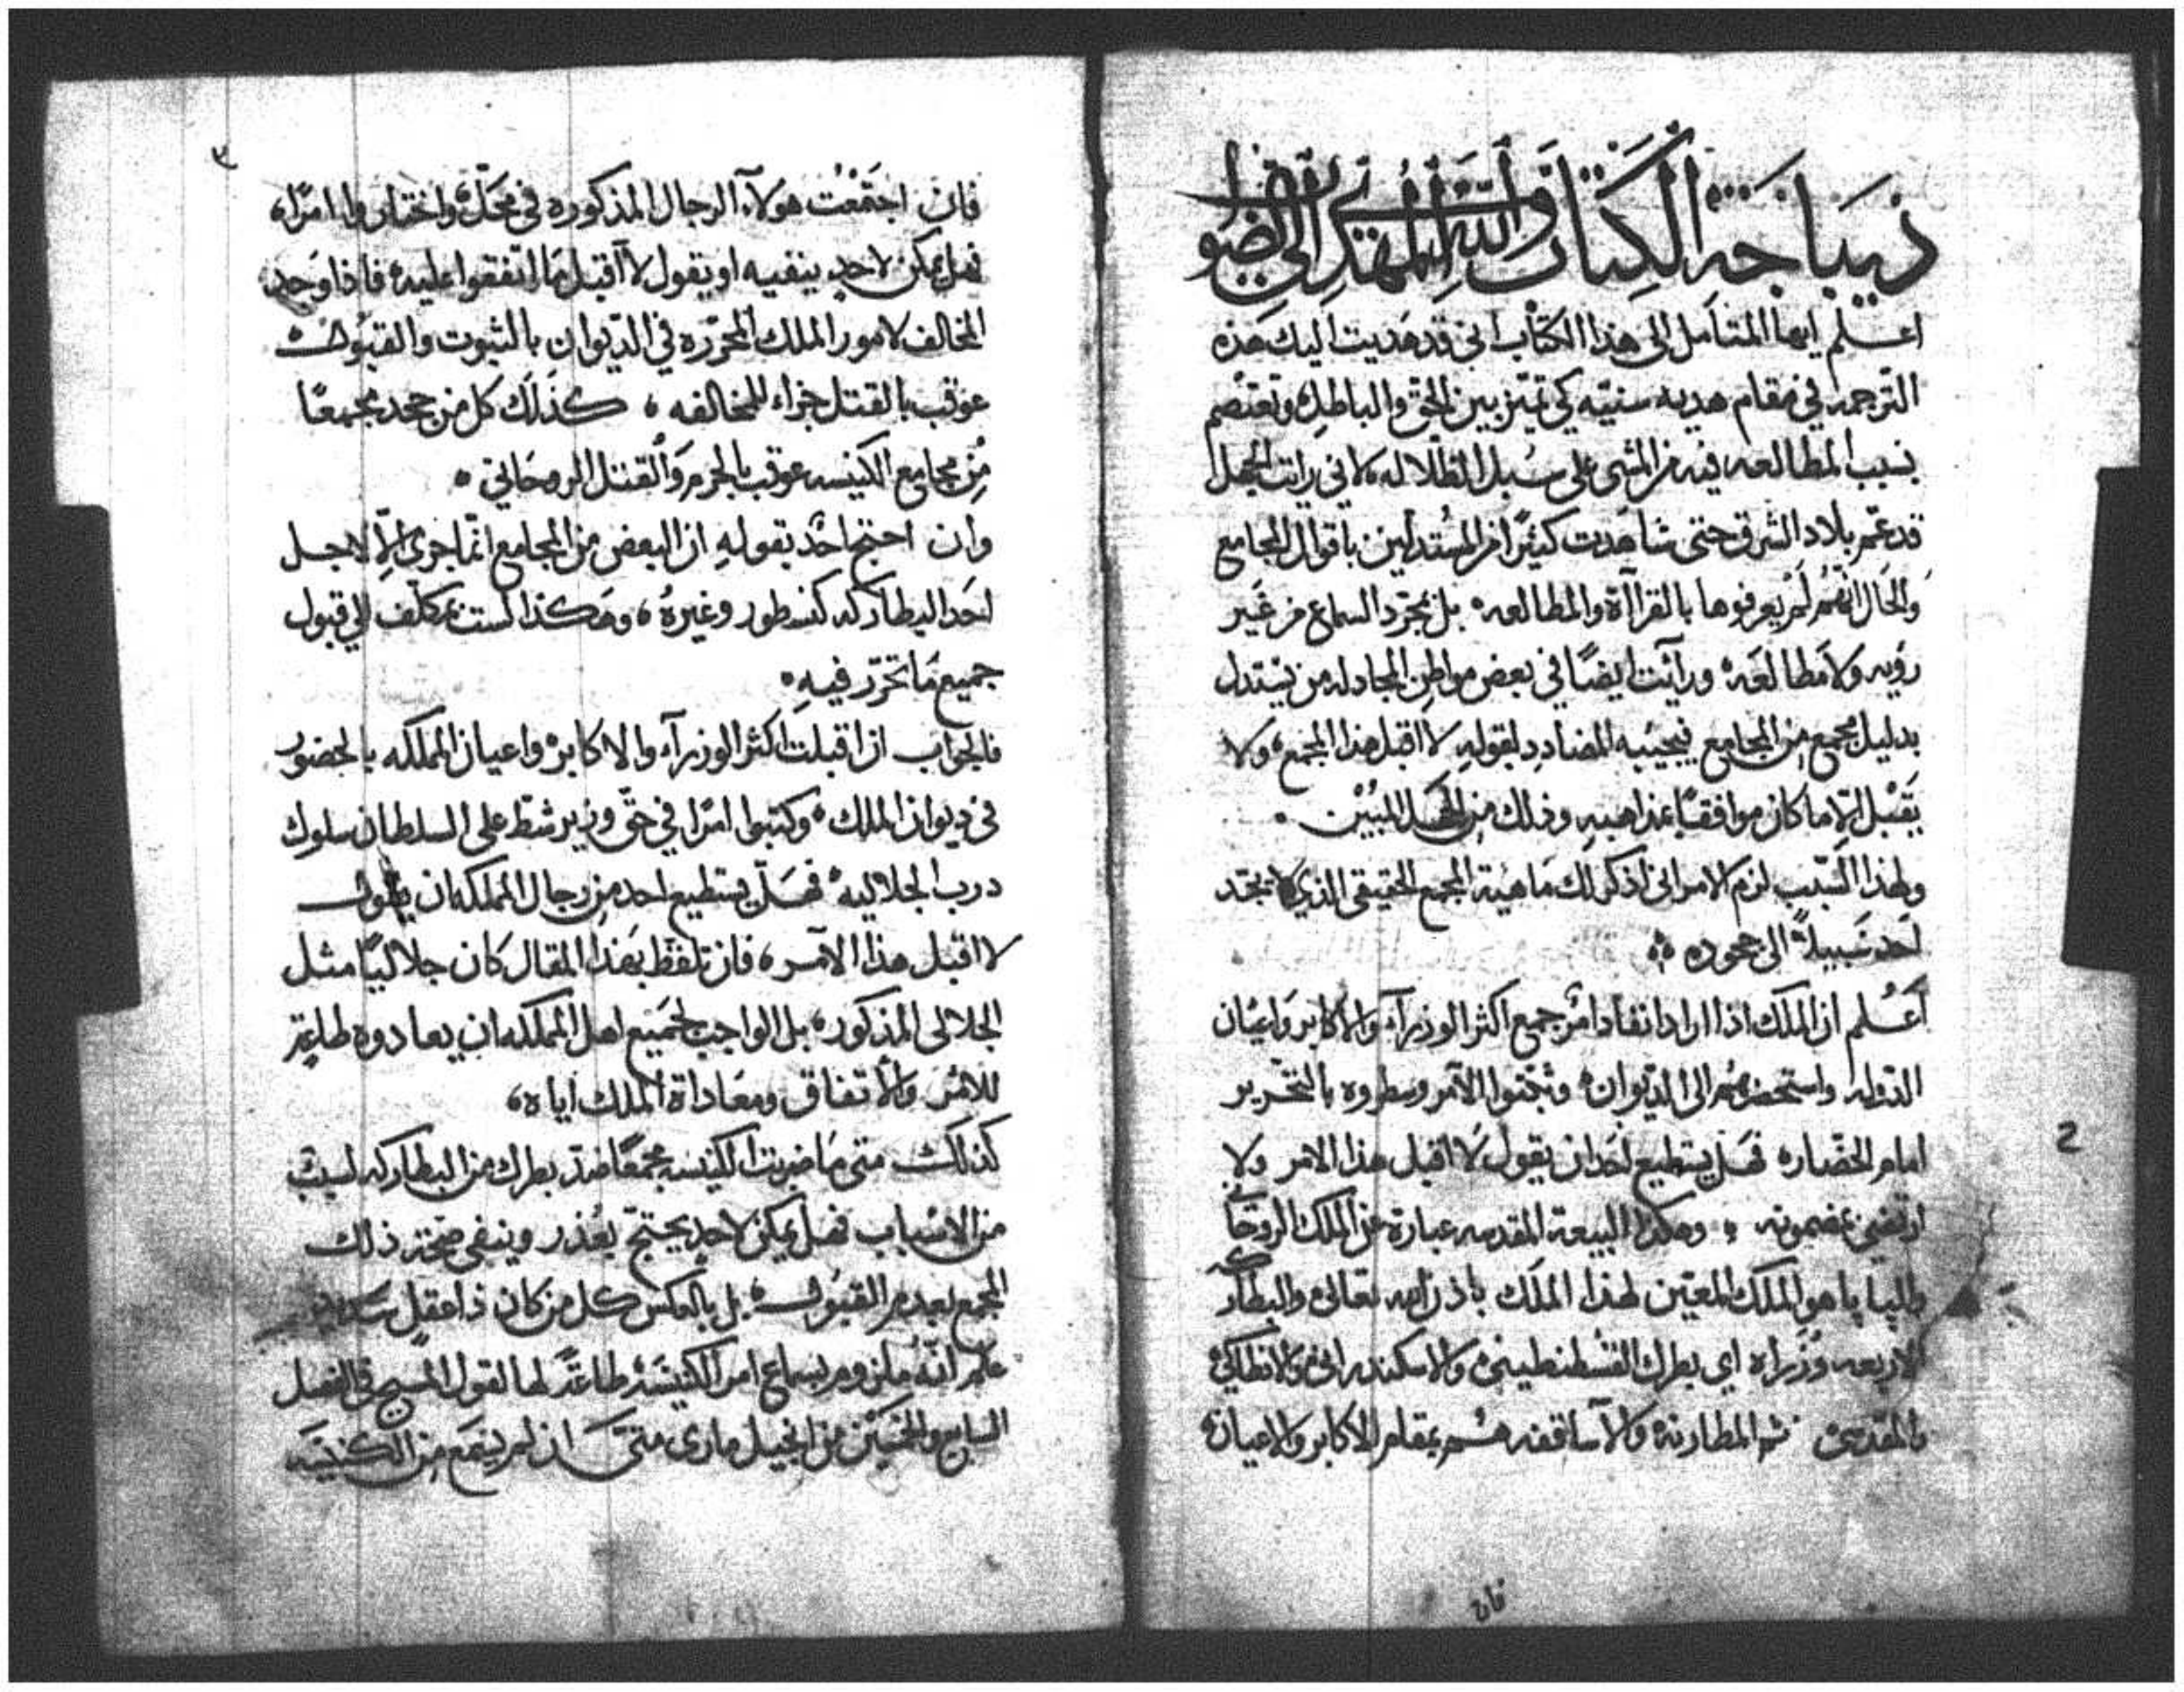 ديباجة الكتاب والله المهدي الى الصواب
اعلم ايها المتامل الى هذا الكتاب انى قد هديت اليك هذه
الترجمه في مقام هديه سنيّه كي تميّز بين الحق والباطل وتعتصم
بسبب المطالعه فيه من المشى على سُبل الظلاله، لاني رايت الجهل
قد عمّ بلاد الشرق حتى شاهدت كثيرًا من المُستدلين باقوال المجامع
والحَال انهُم لَمْ يعرفوها بالقراآة والمطالعه، بل بمجرّد السماع من غَير
رؤيه ولا مطالعَه، ورأيت ايضًا في بعض مواطن المجادله من يستدل
بدليل مجمع من المجامع فيجيبه المضادِد بقولهِ لا اقبل هذا المجمع، ولا
يَقبْل الّا ما كان موافقًا بمذاهبهِ وذلك من الجهل المُبيْن.
ولهذا السّبب لزم الامر انى اذكر لك ماهية المجمع الحقيقي الذي لا يجد
احَد سَبيلاً الى جحوده
اعَلم ان الملك اذا اراد انفاد امرٍ جمع اكثر الوزرآء والاكابر واعيَان
الدّوله واستحضرهُم الى الديوان، وثبّتوا الآمر وسطروه بالتحرير
امام الحضّاره فهَل يستطيع احَد ان يقول لَا اقبل هذا الامر ولا
ارتضي بمضمونه، وهكذا البيعة المقدسه عبارة عن الملك الروحَاني
والپاپا هو الملك المعيّن لهذا الملك باذن الله تعالى والبطاركه
الاربعه وُزَراه اي بطرك القسْطنطينىه والاسكندرانى والانطاكي
والمقدسى ثم المطارنه والآساقفه هُم بمقام الاكابر والاعيان،
فان
2
٣
فان اجتمَعْت هولآء الرجال المذكوره في محَلّ، واختاروا امرًا،
فهل يمكن لاحدٍ ينفيه او يقول لا اقبل مَا اتفقوا عليه، فاذا وَجد
المخالف لامور الملك المحرّره في الديوان بالثبوت والقبُول
عوقب بالقتل جزاء للمخالفه، كذلك كل من جحد مجمعًا
مِن مجامع الكنيسه عوقب بالجرم وَالقتل الروحَاني،
وان احتج احَد بقولهِ ان البعض من المجامع انّما جرى الّا لاجل
احَد البطاركه كنسطور وغيرهُ، وهكذا لست بمكلّف الي قبول
جميع مَا تحرّر فيهِ،
فالجواب ان اقبلت اكثر الوزرآء والاكابر، واعيان المملكه بالحضور
فى ديوان الملك، وكتبوا امرًا في حقّ وزير شطّ على السلطان سلوك
درب الجلاليه، فهَل يستطيع احد مِن رجال المملكه ان يقول
لا اقبل هذا الآمر، فان تلفّظ بهَذا المقال كان جلاليًا مثل
الجلالى المذكور، بل الواجب لجميع اهل المملكه ان يعادوه طاعةً
للامْر والأتفاق ومعَاداة الملك اياه،
كذلك متى مَا ضربت الكنيسه مجمعًا ضدّ بطرك من البطاركه لسبب
من الاسْباب فهل يمكن لاحدٍ يحتجّ بعُذر وينفي صحّة ذلك
المجمع بعدم القبُول، بل بالعكس كل من كان ذا عقل سَديد
علم انّهُ ملزوم بسماع امر الكنيسَة، طاعةً لها لقول المسيح في الفصل
السابع والخمسين من انجيل مارى متى ان لم يسمَع مِن الكنيسَه